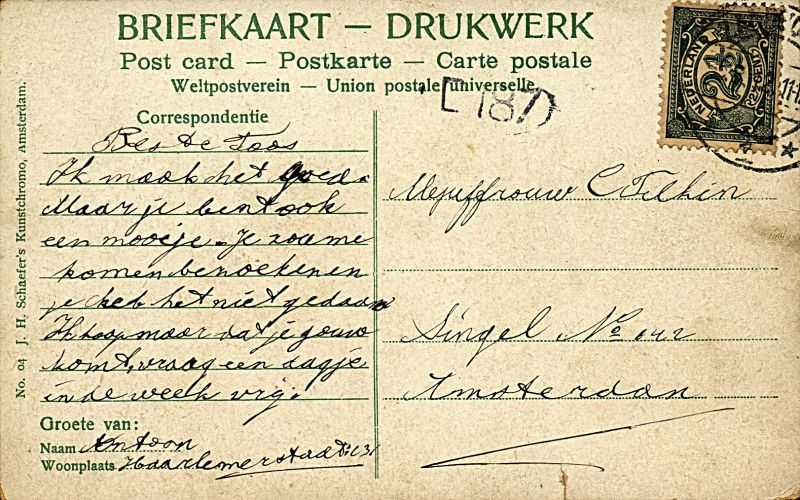 BRIEFKAART — DRUKWERK
Post card — Postkarte — Carte postale
Weltpostverein — Union postale universelle.
[187]
NEDERLAND
2½
Correspondentie
Ik maak het goed.
Maar je bent ook
een mooije. Je zou me
komen bezoeken en
je heb het niet gedaan
Ik hoop maar dat je gouw
komt, vraag een dagje
in de week vrij.
Groete van:
Naam Antoon
Woonplaats Haarlemerstaat
Mejuffrouw C
Singel No 642
Amsterdam
No. 04 J. H. Schaefer's Kunstchromo, Amsterdam.